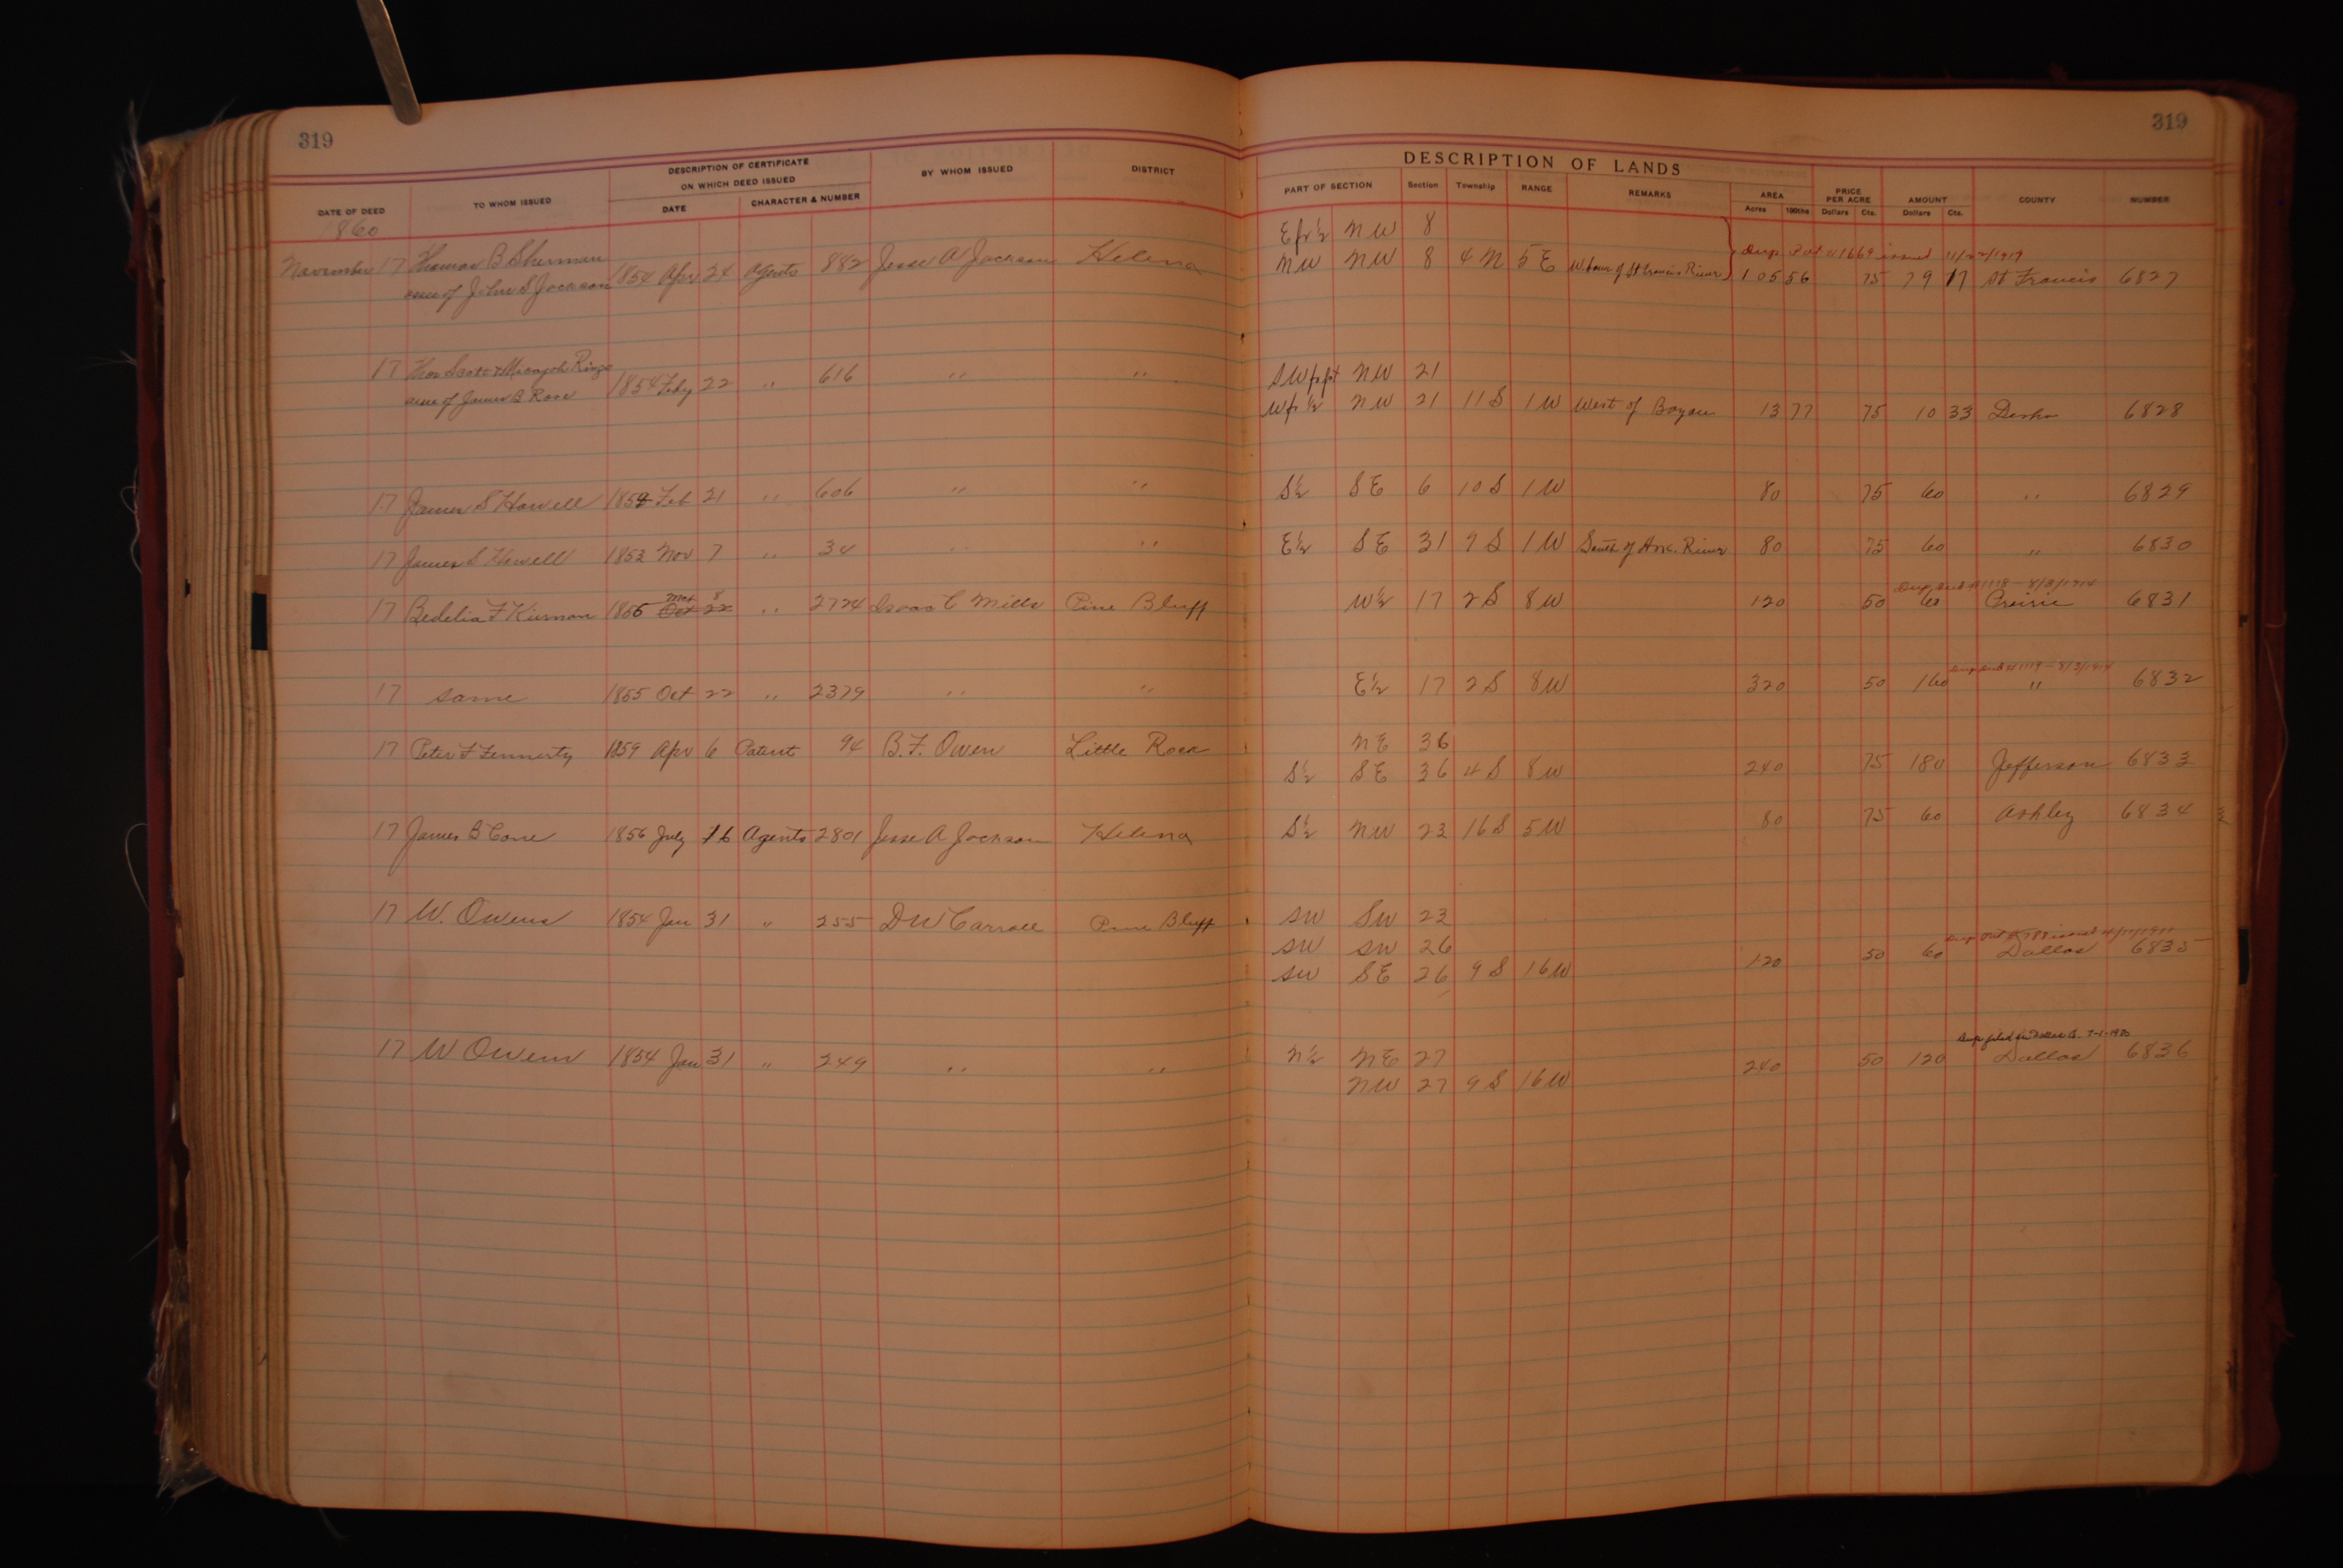 319
319
DESCRIPTION OF CERTIFICATE
ON WHICH DEED ISSUED
DATE OF DEED TO WHOM ISSUED DATE CHARACTER & NUMBER BY WHOM ISSUED DISTRICT
DESCRIPTION OF LANDS
PART OF SECTION Section Township RANGE REMARKS AREA Acres 100ths PRICE PER ACRE Dollars Cts. AMOUNT Dollars Cts. COUNTY NUMBER
1860
E fr ½ NW 8
Dup. 1669 issued
November 17 Thomas B Sherman 1854 Apr 24 Agents 882 Jesse A Jackson Helena NW NW 8 4 N 5 E W. of St Francis River 105 56 75 79 17 St Francis 6827
assee of John S Jackson
17 Thos Scott & Micajah 1854 Feby 22 " 616 " " SW fr pt NW 21
assee of James B Rose W fr ½ NW 21 11 S 1 W West of Bayou 13 77 75 10 33 Desha 6828
17 James S Howell 1852 Feb 21 " 606 " " S½ SE 6 10 S 1 W 80 75 60 " 6829
17 James S Howell 1853 Nov 7 " 34 " " E½ SE 31 9 S 1 W South of Ark. River 80 75 60 " 6830
Dup Deed #1118 — 8/3/1914
8
17 Bedelia F Kiernan 1856 Oct 22 " 2724 Isaac C Mills Pine Bluff W½ 17 2 S 8 W 120 50 60 Prairie 6831
Dup Deed #1119 — 8/3/1914
17 same 1855 Oct 22 " 2379 " " E½ 17 2 S 8 W 320 50 160 " 6832
17 Peter F Finnerty 1859 Apr 6 Patent 94 B.F. Owen Little Rock NE 36
S½ SE 36 4 S 8 W 240 75 180 Jefferson 6833
17 James B Cone 1856 July 16 Agents 2801 Jesse A Jackson Helena S½ NW 23 16 S 5 W 80 75 60 Ashley 6834
17 W. Owens 1854 Jan 31 " 255 D W Carroll Pine Bluff SW SW 23
SW SW 26
SW SE 26 9 S 16 W 120 50 60 Dallas 6835
Dup filed in Dallas Co.
17 W Owens 1854 Jan 31 " 249 " " N½ NE 27
NW 27 9 S 16 W 240 50 120 Dallas 6836